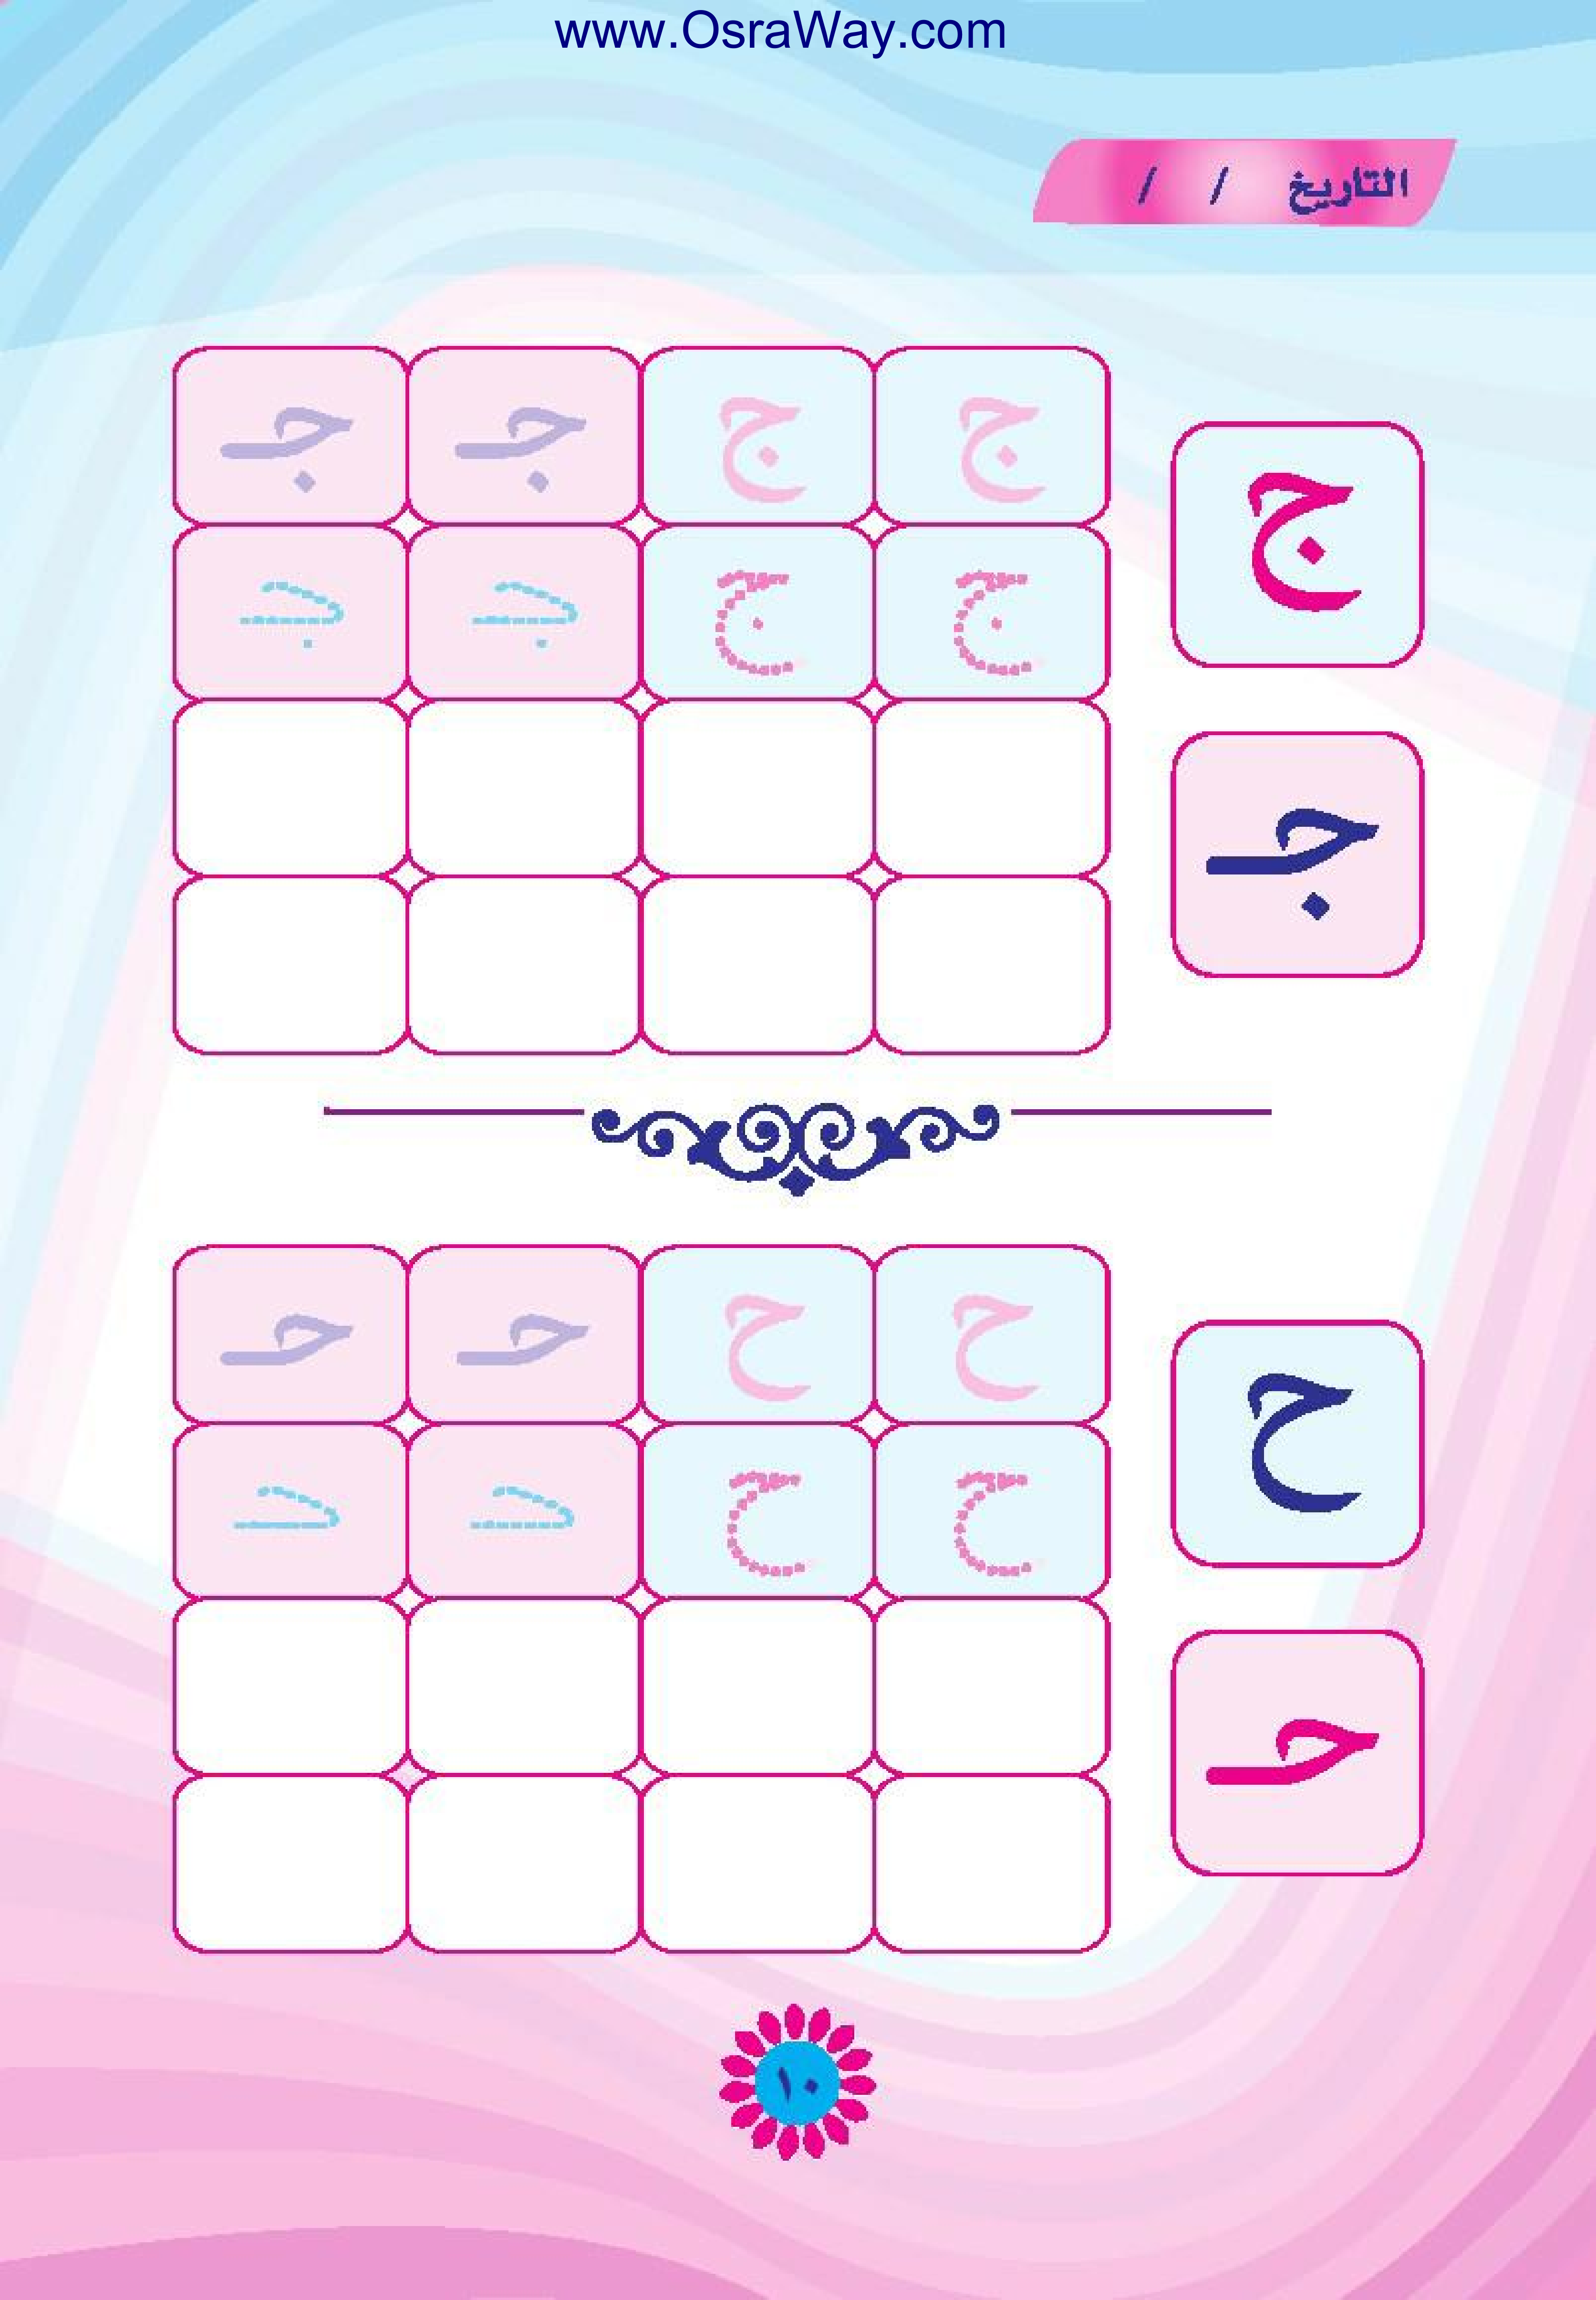 www.OsraWay.com
التاريخ / /
ج
ج ج جـ جـ
ج ج جـ جـ
جـ
ح
ح ح حـ حـ
ح ح حـ حـ
حـ
١٠